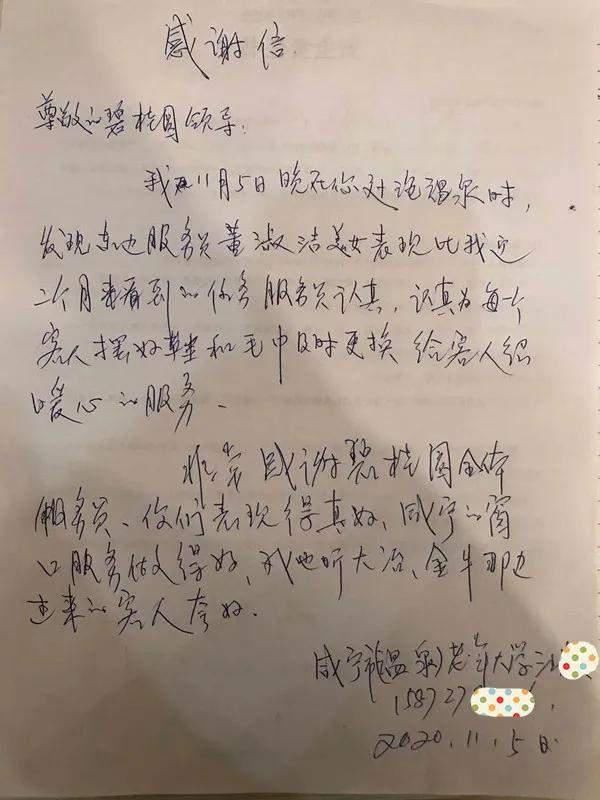 感谢信
尊敬的碧桂园领导:
我 11月5日晚在您处泡温泉时,
发现 池服务员董淑洁美女表现比我近
二个月来看到的 服务员认真,认真为每个
客人摆好鞋和毛巾及时更换 给客人很
暖心的服务.
非常感谢碧桂园全体
服务员、你们表现得真好,咸宁的窗
口服务做得好,我也听大冶、金牛那边
过来的客人夸好.
咸宁市温泉老年大学江
158727
2020.11.5日.